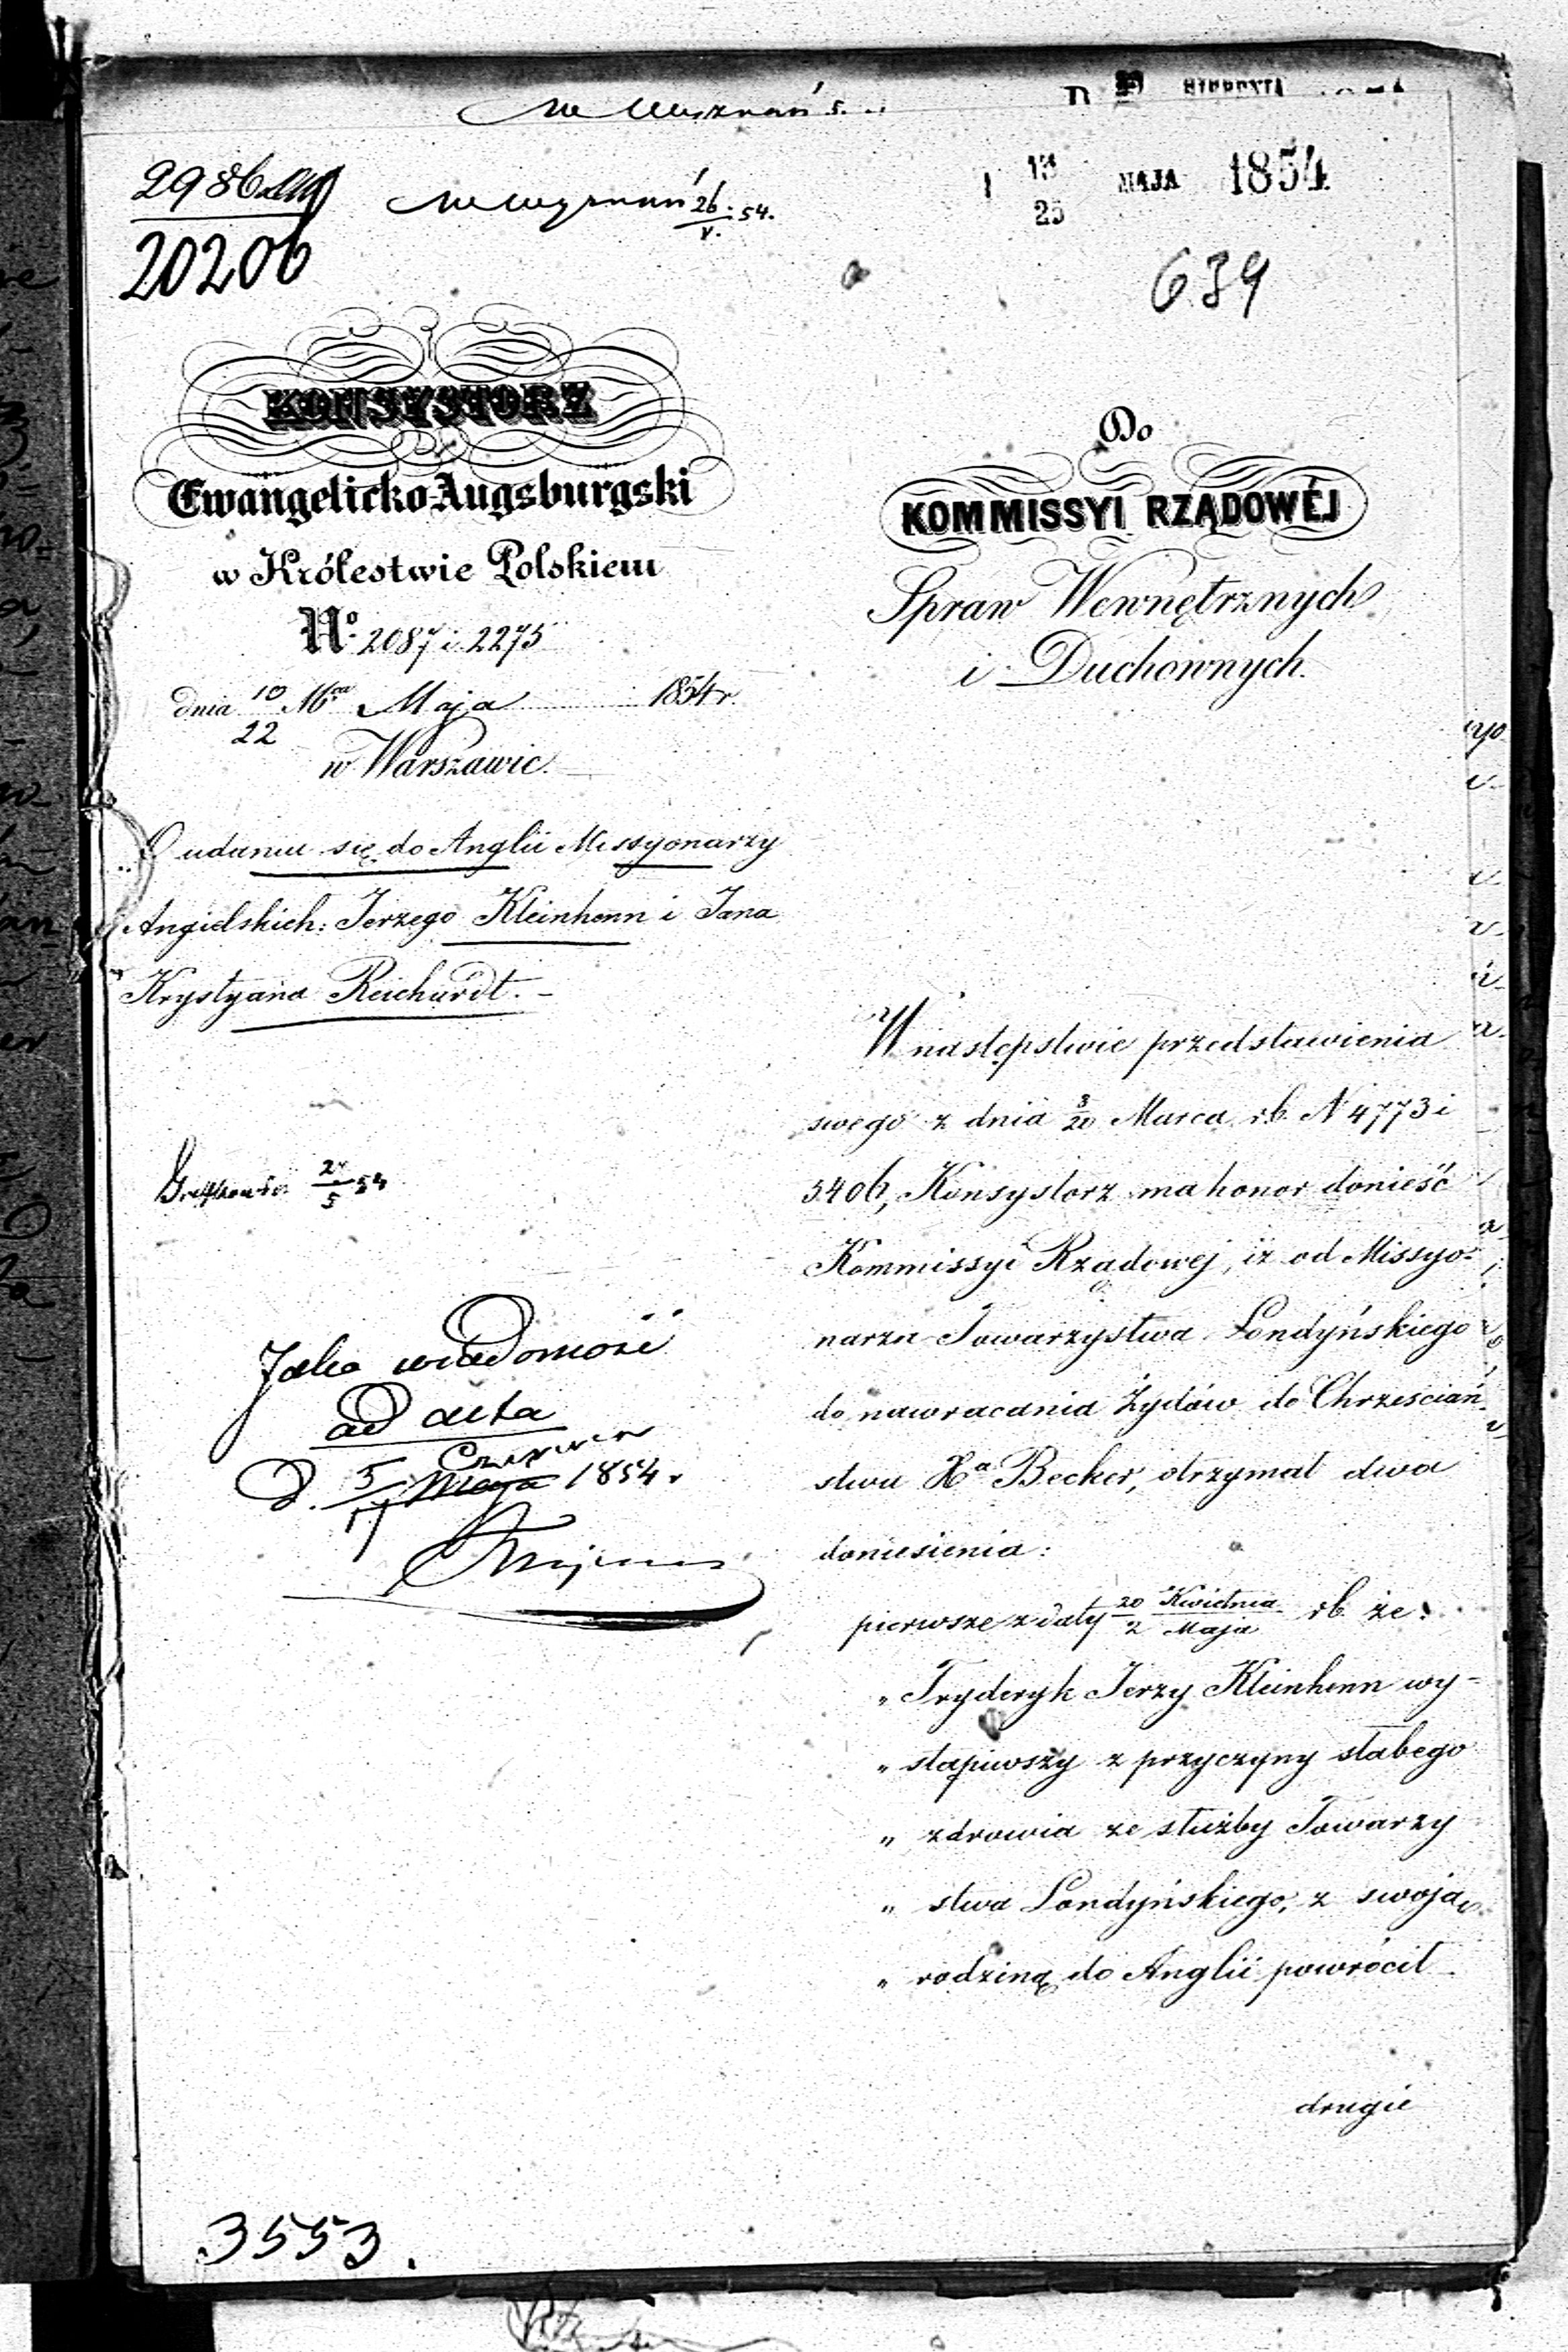 1854
13
25
MAJA
2986
20206
26/V. 54.
639
KONSYSTORZ
Ewangelicko-Augsburgski
w Królestwie Polskiem
No. 2087 i 2275
dnia 10/22 Mca Maja 1854 r.
w Warszawie.
O udaniu się do Anglii Missyonarzy
Angielskich: Jerzego Kleinhenn i Jana
Krystyana Reichardt. -
Do
KOMMISSYI RZĄDOWÉJ
Spraw Wewnętrznych
i Duchownych.
W następstwie przedstawienia
swego z dnia 8/20 Marca rb. N 4773 i
5406, Konsystorz ma honor donieść
Kommissyi Rządowej, iż od Missyo-
narza Towarzystwa Londyńskiego
do nawracania Żydów do Chrześciań-
stwa Ha Becker, otrzymał dwa
doniesienia:
pierwsze z daty 20 Kwietnia/2 Maja rb. że:
„ Fryderyk Jerzy Kleinhenn wy-
„ stąpiwszy z przyczyny słabego
„ zdrowia ze służby Towarzy
„ stwa Londyńskiego, z swoją
„ rodziną do Anglii powrócił
drugie
24/5 54
Jako wiadomość
ad acta
Czerwca
d. 5/17 Maja 1854 r
3553.